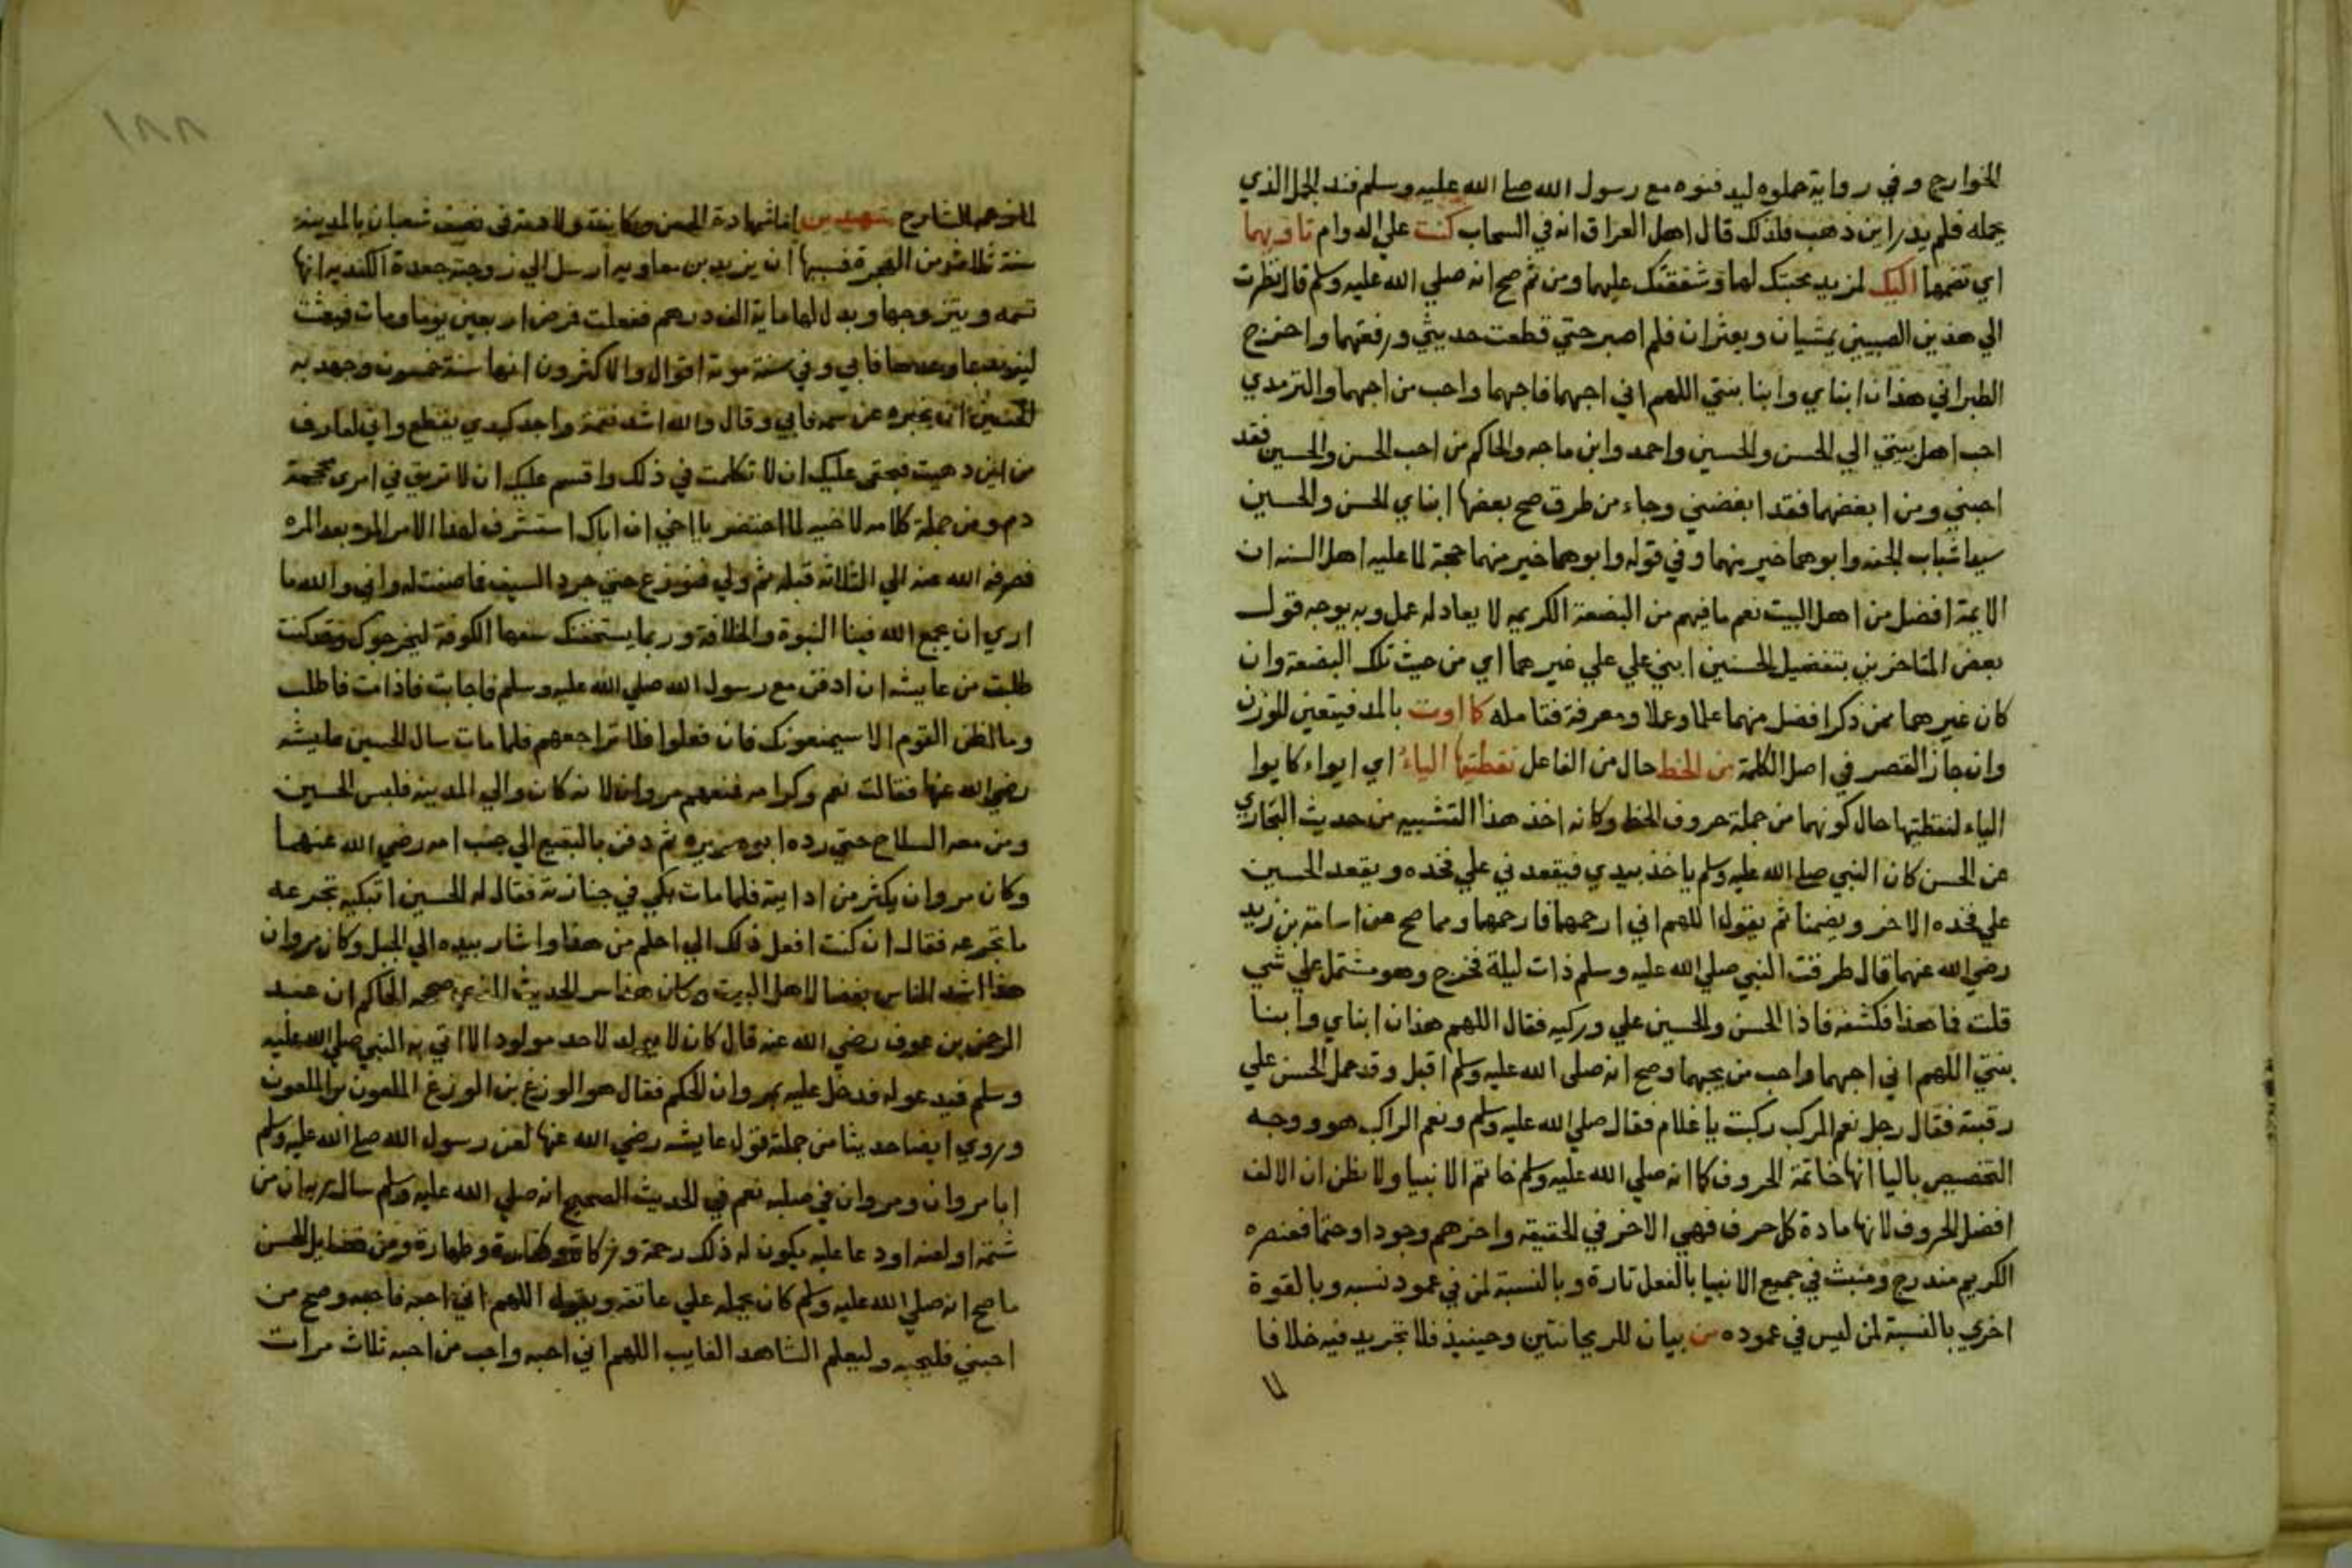 الخوارج وفي رواية حملوه ليدفنوه مع رسول الله صلى الله عليه وسلم فند الجمل الذي
يحمله فلم يدر اين ذهب فلذلك قال اهل العراق انه في السحاب كنت علي الدوام تاويهما
اي تضمها اليك لمزيد محبتك لهما وشفقتك عليهما ومن ثم صح انه صلي الله عليه وسلم قال نظرت
الي هذين الصبيين يمشيان ويعثران فلم اصبر حتي قطعت حديثي ورفعتهما واخرج
الطبراني هذان ابناي وابنا بنتي اللهم اني احبهما فاحبهما واحب من احبهما والترمدي
احب اهل بيتي الي الحسن والحسين واحمد وابن ماجه والحاكم من احب الحسن والحسين فقد
احبني ومن ابغضهما فقد ابغضني وجاء من طرق صح بعضها ابناي الحسن والحسين
سيدا شباب الجنه وابوهما خير منهما وفي قوله وابوهما خير منهما حجة لما عليه اهل السنه ان
الايمة افضل من اهل البيت نعم ما فيهم من البضعة الكريمه لا يعادله عمل وبه يوجه قول
بعض المتاخرين بتفضيل الحسنين ابني علي علي غيرهما اي من حيث تلك البضعة وان
كان غيرهما ممن ذكر افضل منهما علما وعملا ومعرفة فتامله كما اوت بالمد فيتعين للوزن
وان جاز القصر في اصل الكلمة من الخط حال من الفاعل نقطتيها الياءُ اي ايواء كايوا
الياء لنقطتيها حال كونهما من جملة حروف الخط وكانه اخذ هذا التشبيه من حديث البخاري
عن الحسن كان النبي صلى الله عليه وسلم ياخذ بيدي فيقعدني علي فخده ويقعد الحسين
علي فخده الاخر ويضمنا ثم يقول اللهم اني ارحمهما فارحمهما ومما صح عن اسامة بن زيد
رضي الله عنهما قال طرقت النبي صلي الله عليه وسلم ذات ليلة فخرج وهو مشتمل علي شي
قلت ما هذا فكشفه فاذا الحسن والحسين علي وركيه فقال اللهم هذان ابناي وابنا
بنتي اللهم اني احبهما واحب من يحبهما وصح انه صلى الله عليه وسلم اقبل وقد حمل الحسن علي
رقبته فقال رجل نعم المركب ركبت يا غلام فقال صلي الله عليه وسلم ونعم الراكب هو ووجه
التخصيص باليا انها خاتمة الحروف كما انه صلي الله عليه وسلم خاتم الانبيا ولا نظن ان الالف
افضل الحروف لانها مادة كل حرف فهي الاخر في الحقيقه واخرهم وجودا وحتما فعنصره
الكريم مندرج ومنبث في جميع الانبيا بالفعل تارة وبالنسبة لمن في عمود نسبه وبالقوة
اخري بالنسبة لمن ليس في عموده من بيان للريحانتين وحينيذ فلا تجريد فيه خلافا
لما
١٨٨
لما توهمه الشارح شهيدين اما شهادة الحسن وكانت ولادته في نصف شعبان بالمدينة
سنة ثلاث من الهجرة فسببها ان يزيد بن معاويه ارسل الي زوجته جعدة الكنديه انها
تسمه ويتزوجها وبدل لها ماية الف درهم ففعلت فمرض اربعين يوما ومات فبعثت
ليزيد بما وعدها فابي وفي سنة موته اقوال والاكثرون انها سنة خمسون وجهد به
الحسين ان يخبره عن سمه فابي وقال والله اشد نقمة واجد كبدي يقطع واني لعارف
من اين دهيت فبحقي عليك ان لا تكلمت في ذلك واقسم عليك ان لا تريق في امري محجمة
دم ومن جملة كلامه لاخيه لما احتضر يا اخي ان اباك استشرف لهذا الامر المره بعد المره
فصرفه الله عنه الي الثلاثه قبله ثم ولي فنوزع حتي جرد السيف فما صفت له واني والله ما
اري ان يجمع الله فينا النبوة والخلافة وربما يستخفنك سفها الكوفة ليخرجوك وقد كنت
طلبت من عايشه ان ادفن مع رسول الله صلي الله عليه وسلم فاجابت فاذا مت فاطلب
وما اظن القوم الا سيمنعونك فان فعلوا فلا تراجعهم فلما مات سال الحسين عايشه
رضي الله عنها فقالت نعم وكرامه فمنعهم مروان لانه كان والي المدينه فلبس الحسين
ومن معه السلاح حتي رده ابو هريره ثم دفن بالبقيع الي جنب امه رضي الله عنهما
وكان مروان يكثر من اداية فلما مات بكي في جنازته فقال له الحسين اتبكيه تجرعه
ما تجرعه فقال ان كنت افعل ذلك الي احلم من هذا واشار بيده الي الجبل وكان مروان
هذا اشد الناس بغضا لاهل البيت وكان هذا سر الحديث الذي صححه الحاكم ان عبد
الرحمن بن عوف رضي الله عنه قال كان لا يولد لاحد مولود الا اتي به النبي صلي الله عليه
وسلم فيدعو له فدخل عليه بمروان الحكم فقال هو الوزغ بن الوزغ الملعون بن الملعون
وروي ايضا حديثا من جملة قول عايشه رضي الله عنها لعن رسول الله صلى الله عليه وسلم
ابا مروان ومروان في صلبه نعم في الحديث الصحيح انه صلي الله عليه وسلم سال ربه ان من
شتمه او لعنه او دعا عليه يكون له ذلك رحمة وزكاة وكفارة وطهارة ومن فضايل الحسن
ما صح انه صلي الله عليه وسلم كان يحمله علي عاتقه ويقول اللهم اني احبه فاحبه وصح من
احبني فليحبه وليعلم الشاهد الغايب اللهم اني احبه واحب من احبه ثلاث مرات